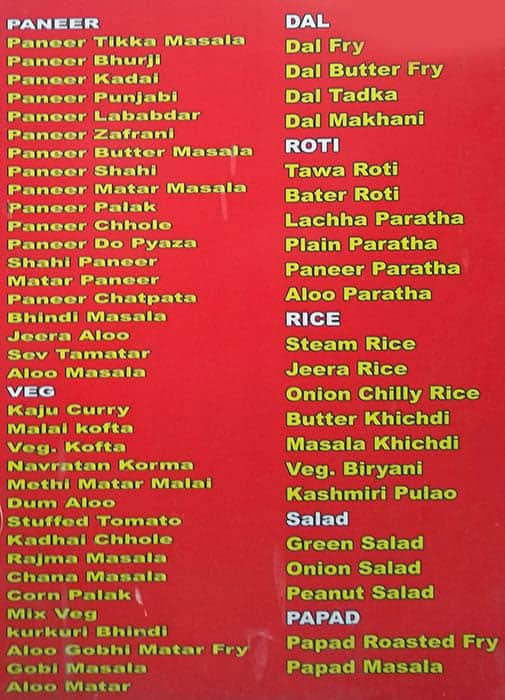 PANEER
Paneer Tikka Masala
Paneer Bhurji
Paneer Kadai
Paneer Punjabi
Paneer Lababdar
Paneer Zafrani
Paneer Butter Masala
Paneer Shahi
Paneer Matar Masala
Paneer Palak
Paneer Chhole
Paneer Do Pyaza
Shahi Paneer
Matar Paneer
Paneer Chatpata
Bhindi Masala
Jeera Aloo
Sev Tamatar
Aloo Masala
VEG
Kaju Curry
Malai kofta
Veg. Kofta
Navratan Korma
Methi Matar Malai
Dum Aloo
Stuffed Tomato
Kadhai Chhole
Rajma Masala
Chana Masala
Corn Palak
Mix Veg
kurkuri Bhindi
Aloo Gobhi Matar Fry
Gobi Masala
Aloo Matar
DAL
Dal Fry
Dal Butter Fry
Dal Tadka
Dal Makhani
ROTI
Tawa Roti
Bater Roti
Lachha Paratha
Plain Paratha
Paneer Paratha
Aloo Paratha
RICE
Steam Rice
Jeera Rice
Onion Chilly Rice
Butter Khichdi
Masala Khichdi
Veg. Biryani
Kashmiri Pulao
Salad
Green Salad
Onion Salad
Peanut Salad
PAPAD
Papad Roasted Fry
Papad Masala